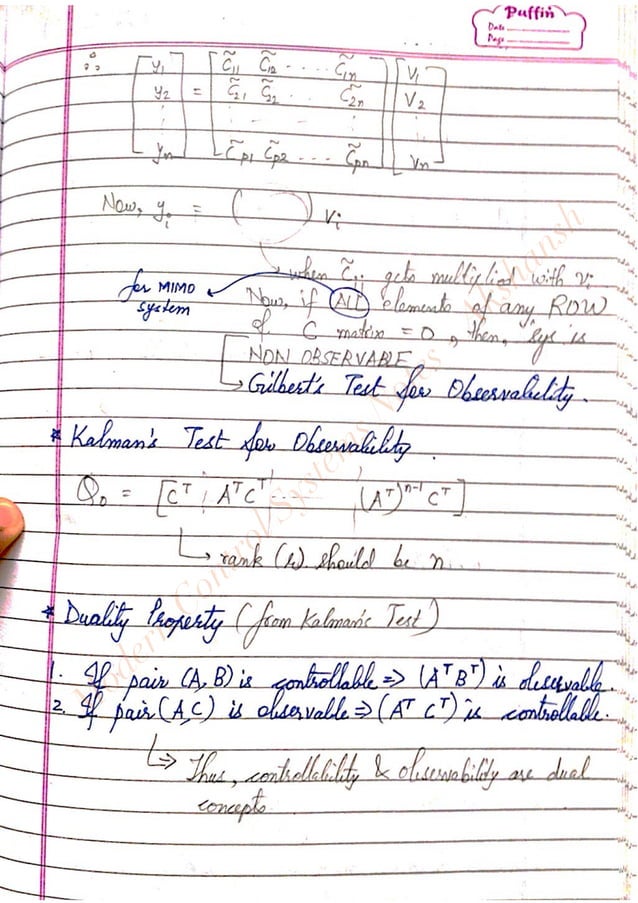 Puffin
Date
Page
∴ [y₁ y₂ ⋮ yₙ] = [C̃₁₁ C̃₁₂ ---- C̃₁ₙ; C̃₂₁ C̃₂₂ ---- C̃₂ₙ; ⋮ - - - ⋮; C̃p₁ C̃p₂ ---- C̃pₙ] [V₁ V₂ ⋮ Vₙ]
Now, yᵢ = ( ) Vᵢ
when C̃ᵢⱼ gets multiplied with vᵢ
for MIMO system
Now, if ALL elements of any ROW
of C matrix = 0, then, sys is
NON OBSERVABLE
→ Gilbert's Test for Observability.
* Kalman's Test for Observability.
Q₀ = [Cᵀ ¦ AᵀCᵀ ---- ¦ (Aᵀ)ⁿ⁻¹ Cᵀ]
→ rank (r) should be n...
* Duality Property (from Kalman's Test)
1. If pair (A, B) is controllable => (Aᵀ Bᵀ) is observable.
2. If pair (A, C) is observable => (Aᵀ Cᵀ) is controllable.
=> Thus, controllability & observability are dual
concepts.
Modern Control Systems Notes Akshansh